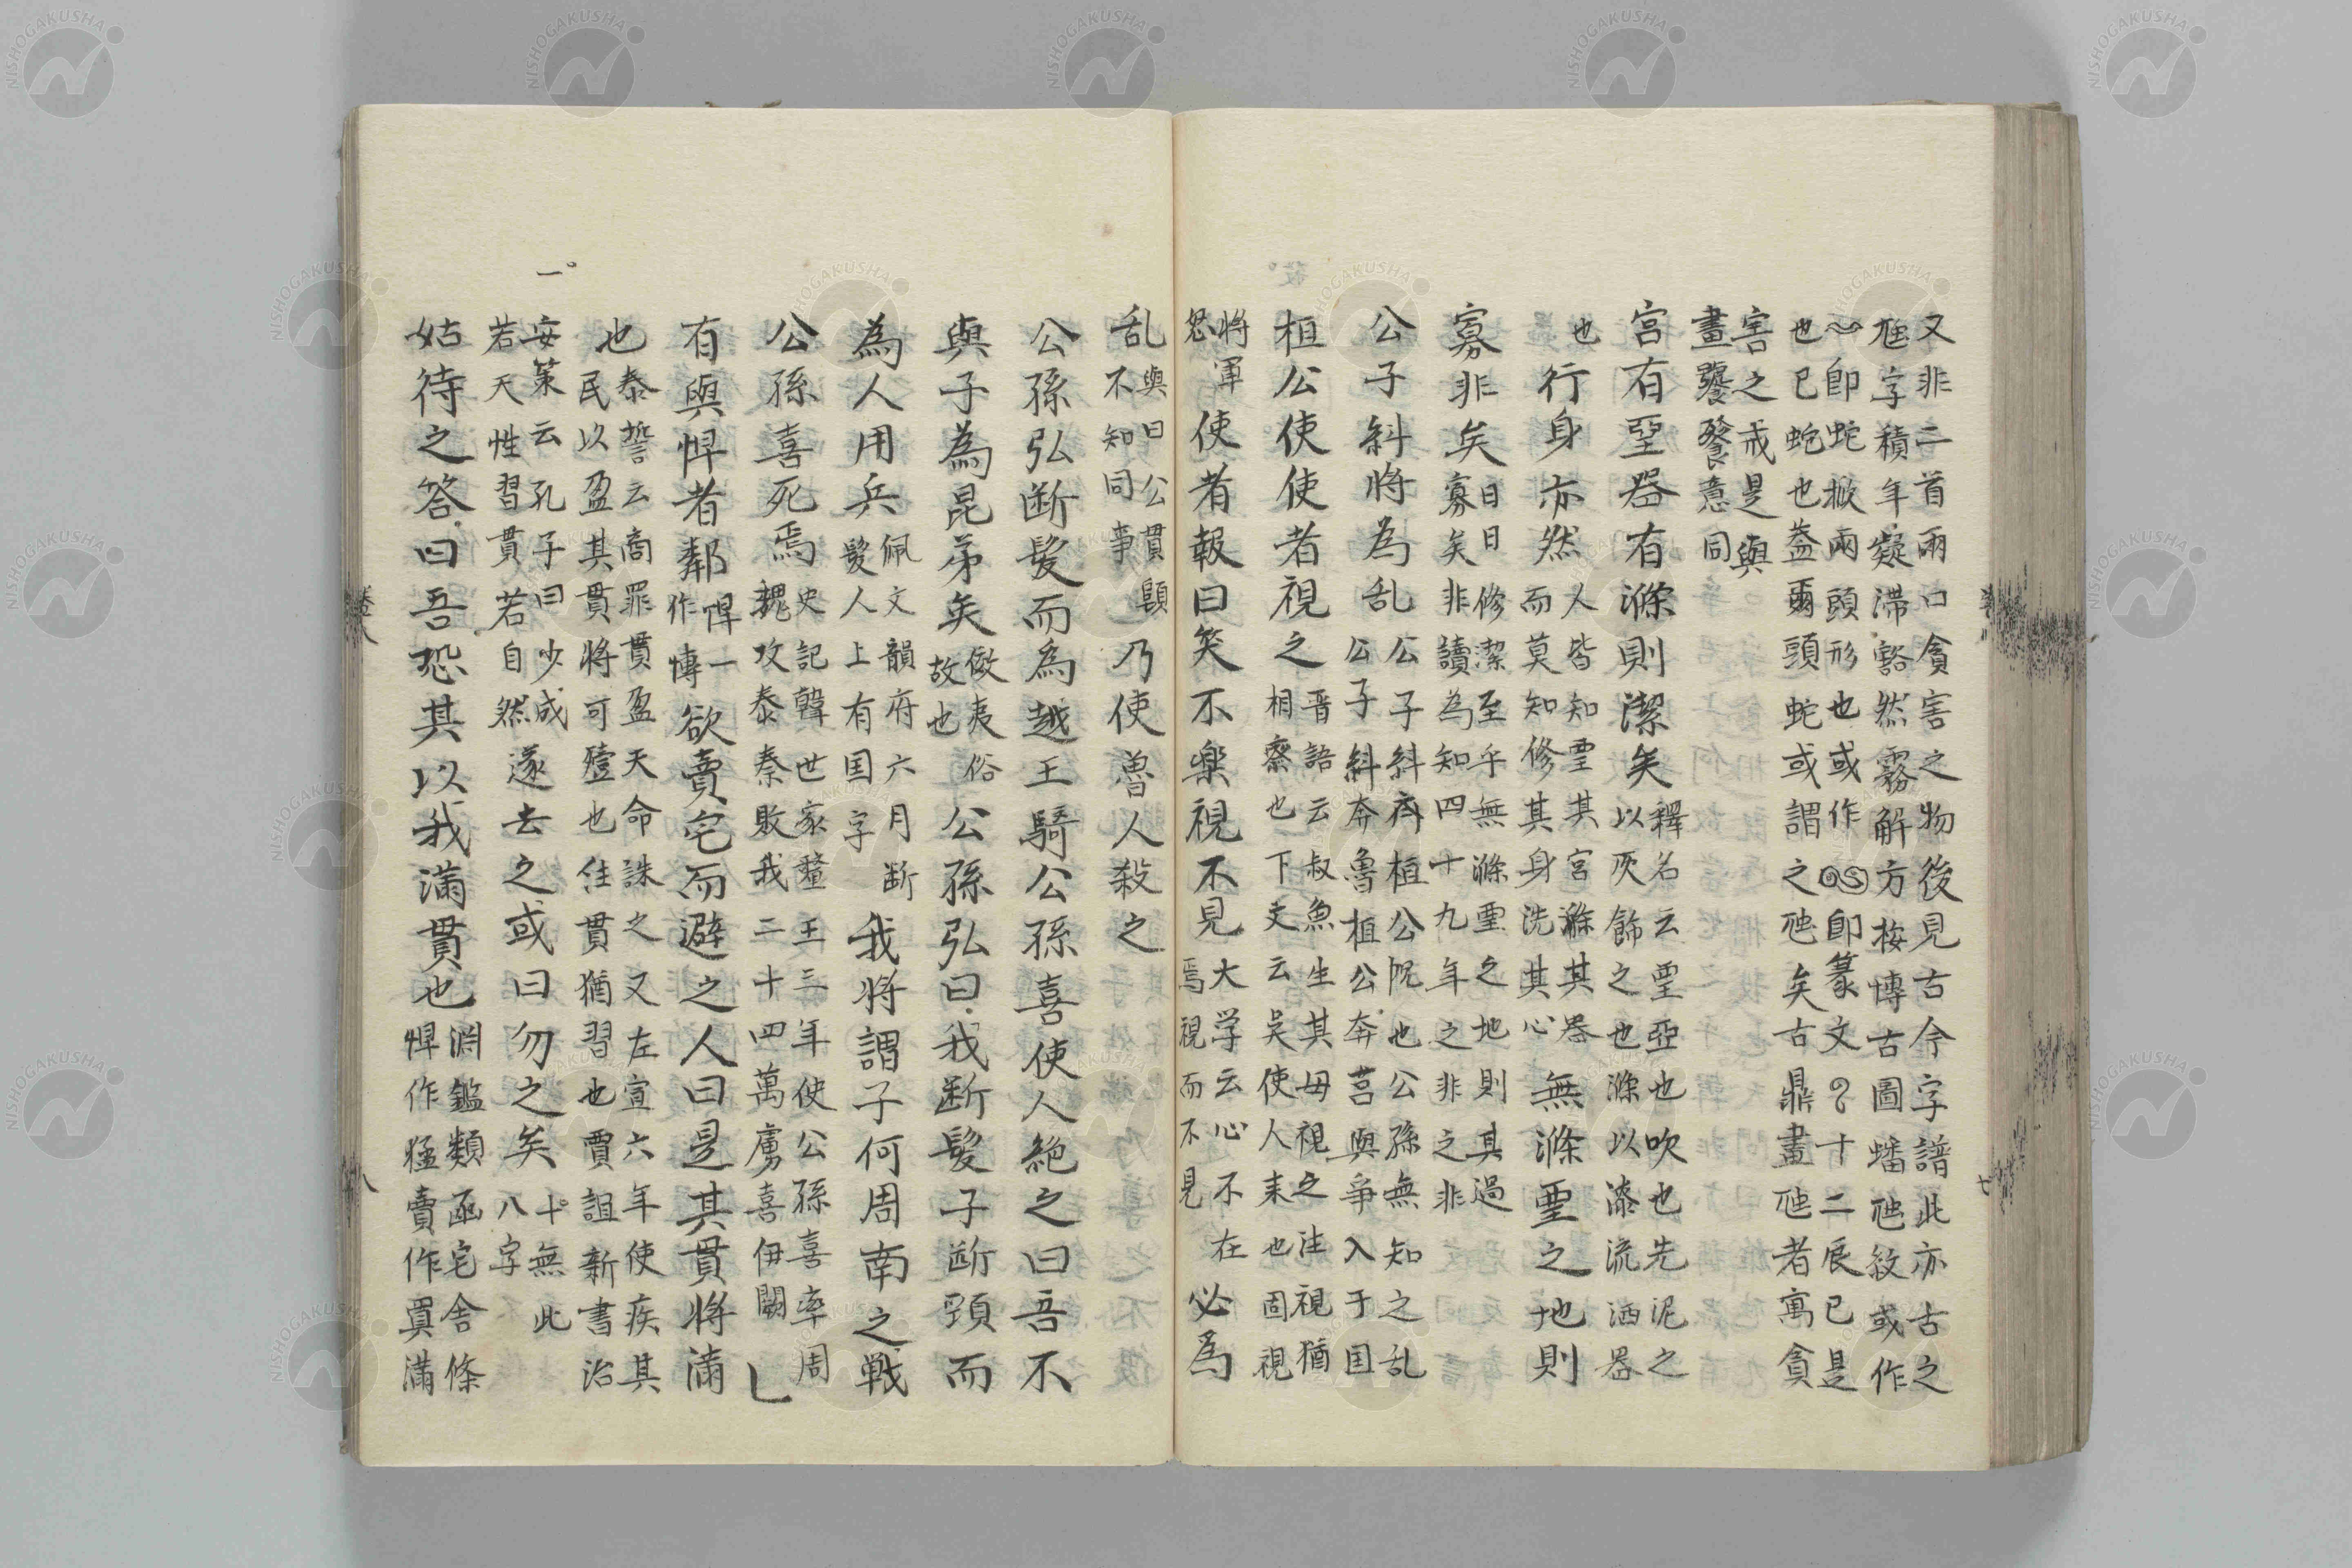 又非二首兩口貪害之物後見古今字譜此亦古之
虺字積年凝滞豁然霧解方按博古圖蟠虺紋或作
即蛇揿兩頭形也或作即篆文十二辰巳是
也巳蛇也蓋爾頭蛇或謂之虺矣古鼎畫虺者寓貪
害之戒是與
畫饕餮意同
宮有堊器有滌則潔矣
釋名云堊亞也吹也先泥之
以灰飾之也滌以漆流洒器
也
行身亦然
人皆知堊其宮滌其器
而莫知修其身洗其心
無滌堊之地則
寡非矣
日日修潔至乎無滌堊之地則其過
寡矣非讀為知四十九年之非之非
公子糾將為乱
公子糾齊桓公怳也公孫無知之乱
公子糾奔魯桓公奔莒與爭入于国
桓公使使者視之
晋語云叔魚生其母視之注視猶
相察也下文云吴使人来也固視
將軍
怒
使者報曰笑不楽視不見
大学云心不在
焉視而不見
必為
乱
與曰公貫顕
不知同事
乃使魯人殺之
公孫弘断髪而為越王騎公孫喜使人絶之曰吾不
與子為昆弟矣
倣夷俗
故也
公孫弘曰我断髪子断頸而
為人用兵
佩文韻府六月断
髪人上有国字
我將謂子何周南之戦
公孫喜死焉
史記韓世家釐王三年使公孫喜率周
魏攻泰秦敗我二十四萬虜喜伊闕
有與悍者鄰
悍一
作博
欲賣宅而避之人曰是其貫將滿
也
泰誓云商罪貫盈天命誅之又左宣六年使疾其
民以盈其貫將可殪也注貫猶習也賈誼新書治
安策云孔子曰少成
若天性習貫若自然
遂去之或曰勿之矣
十無此
八字
一
姑待之答曰吾恐其以我滿貫也
淵鑑類函宅舎條
悍作猛賣作貫滿
卷八
八
七
NISHOGAKUSHA